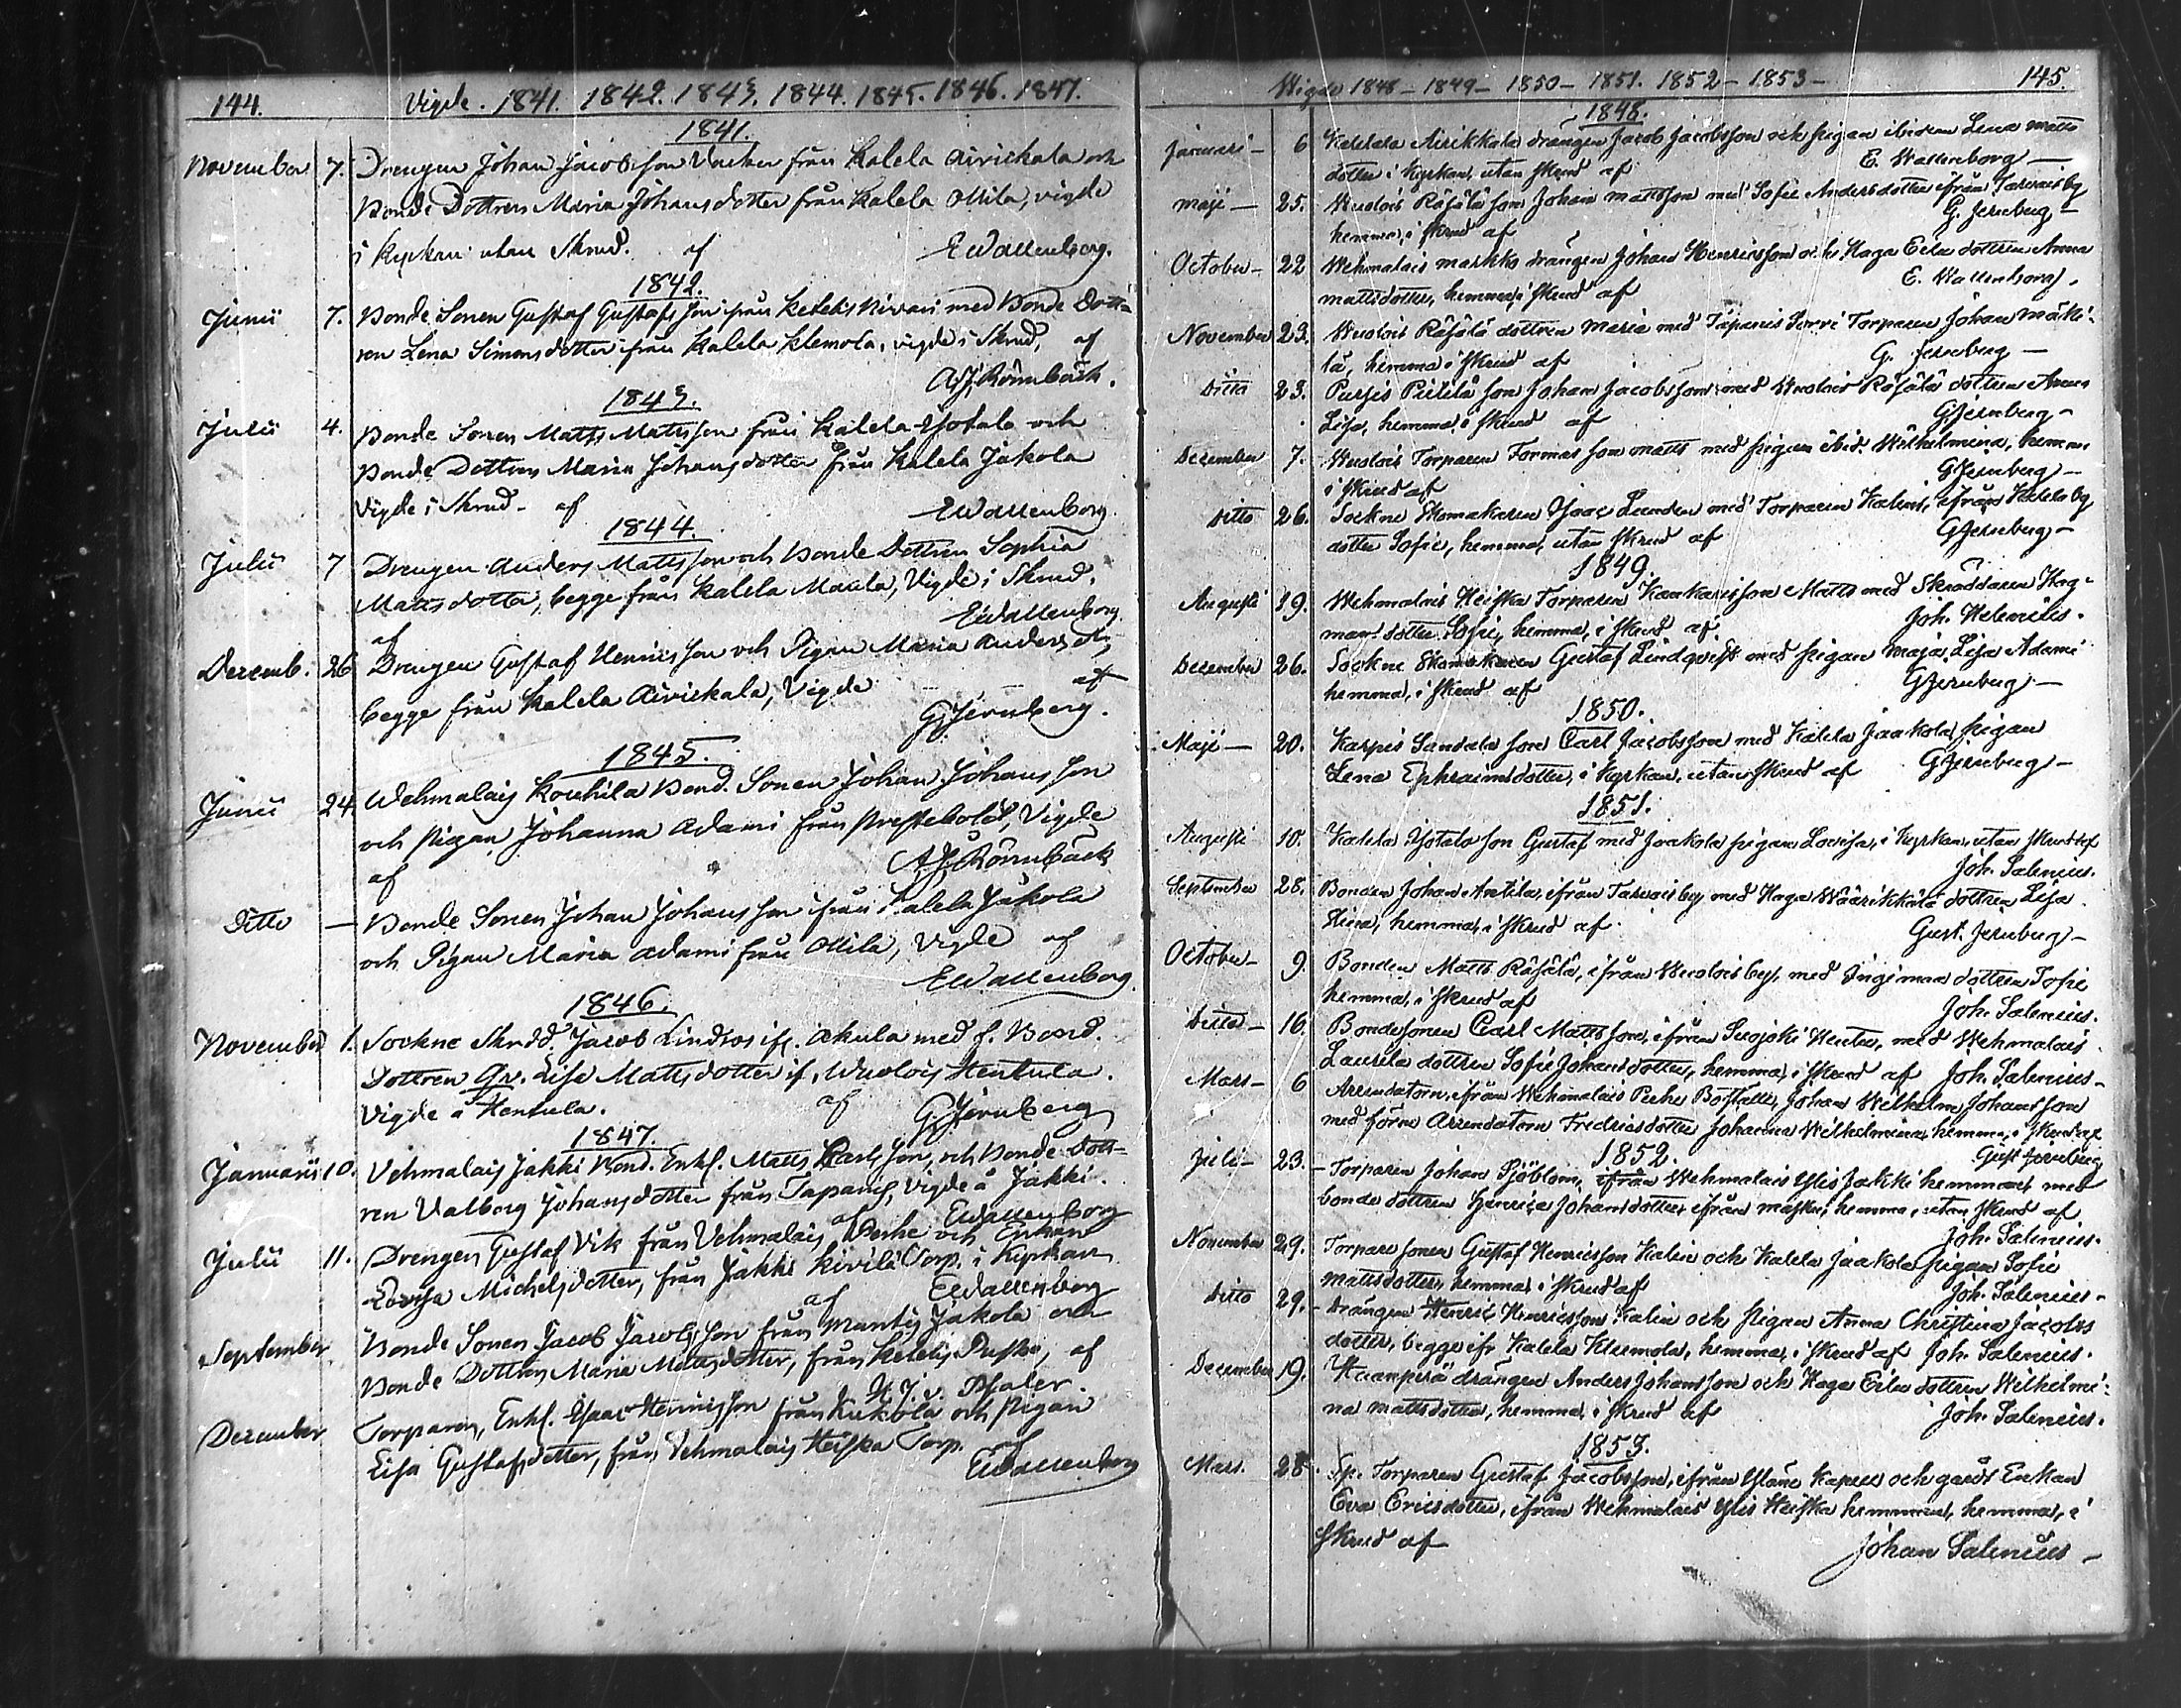 144. Vigde. 1841. 1842. 1843. 1844. 1845. 1846. 1847.
1841.
November 7. Drengen Johan Jacobsson från Kalela Airickala och
Bonde Dottren Maria Johansdotter från Kalela Ollila, vigde
i kyrkan utan Skrud. af EWallenborg.
1842.
Junii 7. Bonde Sonen Gustaf Gustafsson från Keteliskivari med Bonde Dott-
ren Lena Simonsdotter från Kalela Klemola, vigde i Skrud, af
AJ Rönnbäck.
1843.
Julii 4. Bonde Sonen Matts Mattsson från Kalela Isotalo och
Bonde Dottren Maria Johansdotter från Kalela Jakola
Vigde i Skrud. af EWallenborg.
1844.
Julii 7 Drengen Anders Mattsson och Bonde Dottren Sophia
Mattsdotter, begge från Kalela Maula, Vigde i Skrud.
af EWallenborg
Decemb. 26 Drengen Gustaf Henricsson och Pigan Maria Andersdr,
begge från Kalela Airickala, Vigde af
GJernberg.
1845.
Junii 24. Wehmalais Kouhila Bond. Sonen Johan Johansson
och Pigan Johanna Adami från Prestebolet, Vigde
af AJ Rönnbäck
Ditto — Bonde Sonen Johan Johansson från Kalela Jakola
och Pigan Maria Adami från Ollila, Vigde af
EWallenborg
1846.
November 1. Sockne Skrdd. Jacob Lindros ifr. Akula med f. Bond.
Dottren Lisa Mattsdotter if. Wuolois Hentula.
Vigde å Hentula. af GJernberg
1847.
Januarii 10. Vehmalais Jakki Bond. Enkl. Matts Carlsson, och Bonde Dott-
ren Valborg Johansdotter från Tapanis, Vigde å Jakki.
af EWallenborg
Julii 11. Drengen Gustaf Vik från Vehmalais Perhe och Enkan
Lovisa Michelsdotter, från Jakki Kivilä Torp. i Kyrkan
af EWallenborg
September Bonde Sonen Jacob Jacobsson från Mantis Jakola och
Bonde Dottren Maria Mattsdotter, från Ketelis af
December Torparen, Enkl. Isaac Henricsson från Kukola och Pigan
Lisa Gustafsdotter, från Vehmalais Heiska Torp. af
EWallenborg
Wigde 1848 – 1849 – 1850 – 1851. 1852 – 1853 – 145.
1848.
Januari – 6 Kallela Airikkala drängen Jacob Jacobsson och pigan ibidem Lena Matts
dotter i Kyrkan, utan skrud af E. Wallenborg –
Maji – 25. Wuolois Räfälä son Johan Mattsson med Sofie Andersdotter ifrån Tarvais by
hemma, i skrud af G. Jernberg –
October – 22 Wehmalais Markko drängen Johan Henricsson och Haga Eila dottren Anna
Mattsdotter, hemma, i skrud af E. Wallenborg.
November 23. Wuolois Räfälä dottren Maria med Tapanis Torparen Johan Mätti-
lä, hemma i skrud af G. Jernberg –
Ditto 23. Pietilä son Johan Jacobsson med Wuolois Räfälä dottren Anna
Lisa, hemma i skrud af GJernberg –
December 7. Wuolois Torparen Tormas son Matts med pigan ibid. Wilhelmina, hemma
i skrud af GJernberg –
Ditto 26. Sockne Skomakaren Isaac Lunden med Torparen Kalins, ifrån Kallela by
dotter Sofie, hemma, utan skrud af GJernberg –
1849.
Augusti 19. Wehmalais Heiska Torparen son Matts med Skräddaren Hag-
man dotter Sofie, hemma, i skrud af Joh. Helenius.
December 26. Sockne Skomakaren Gustaf Lindqvist med pigan Maja Lisa Adami
hemma, i skrud af GJernberg –
1850.
Maji – 20. Karpis Sandala son Carl Jacobsson med Kallela Jaakola pigan
Lena Ephraimsdotter, i Kyrkan, utan skrud af GJernberg –
1851.
Augusti 10. Kallela Isotalo son Gustaf med Jaakola pigan Lovisa, i Kyrkan, utan skrud af
Joh. Salenius.
September 28. Bonden Johan Antila, ifrån Tarvais by, med Haga Wäärikkälä dottren Lisa
Stina, hemma, i skrud af Gust. Jernberg –
October – 9. Bonden Matts Räfälä, ifrån Wuolois by, med Ingeman dottren Sofie
hemma, i skrud af Joh. Salenius.
Ditto – 16. Bondesonen Carl Mattsson, ifrån Suojoki, med Wehmalais
Laurila dottren Sofie Johansdotter, hemma, i skrud af Joh. Salenius –
Mars – 6 Arrendatorn, ifrån Wehmalais Perhe Boställe, Johan Wilhelm Johansson
med förra Arrendatorn Fredricsdotter Johanna Wilhelmina, hemma, i skrud af
Gust Jernberg
1852.
Juli – 23. – Torparen Johan Sjöblom, ifrån Wehmalais Ylis Jakki hemman, med
bonde dottren Henrica Johansdotter, ifrån Masku, hemma, utan skrud af
Joh. Salenius.
November 29. Torpare sonen Gustaf Henricsson Kalin och Kallela Jaakola pigan Sofie
Mattsdotter, hemma, i skrud af Joh. Salenius –
Ditto 29. – drängen Henric Henricsson Kalin och pigan Anna Christina Jacobs
dotter, begge ifr. Kalela Klemola, hemma, i skrud af Joh. Salenius.
December 19. Haanperä drängen Anders Johansson och Haga Eila dottren Wilhelmi-
na Mattsdotter, hemma, i skrud af Joh. Salenius.
1853.
Mars. 28. Sp. Torparen Gustaf Jacobsson, ifrån Yläne Kapell och gårds Enkan
Eva Ericsdotter, ifrån Wehmalais Ylis Heiska hemman, hemma, i
skrud af Johan Salenius –